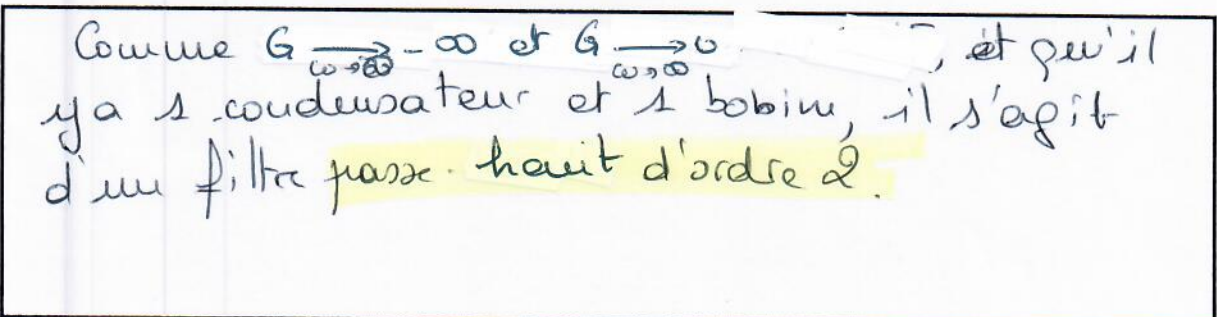 Comme G →ω→0 -∞ et G →ω→∞ 0 , et qu'il
y a 1 condensateur et 1 bobine, il s'agit
d'un filtre passe-haut d'ordre 2.